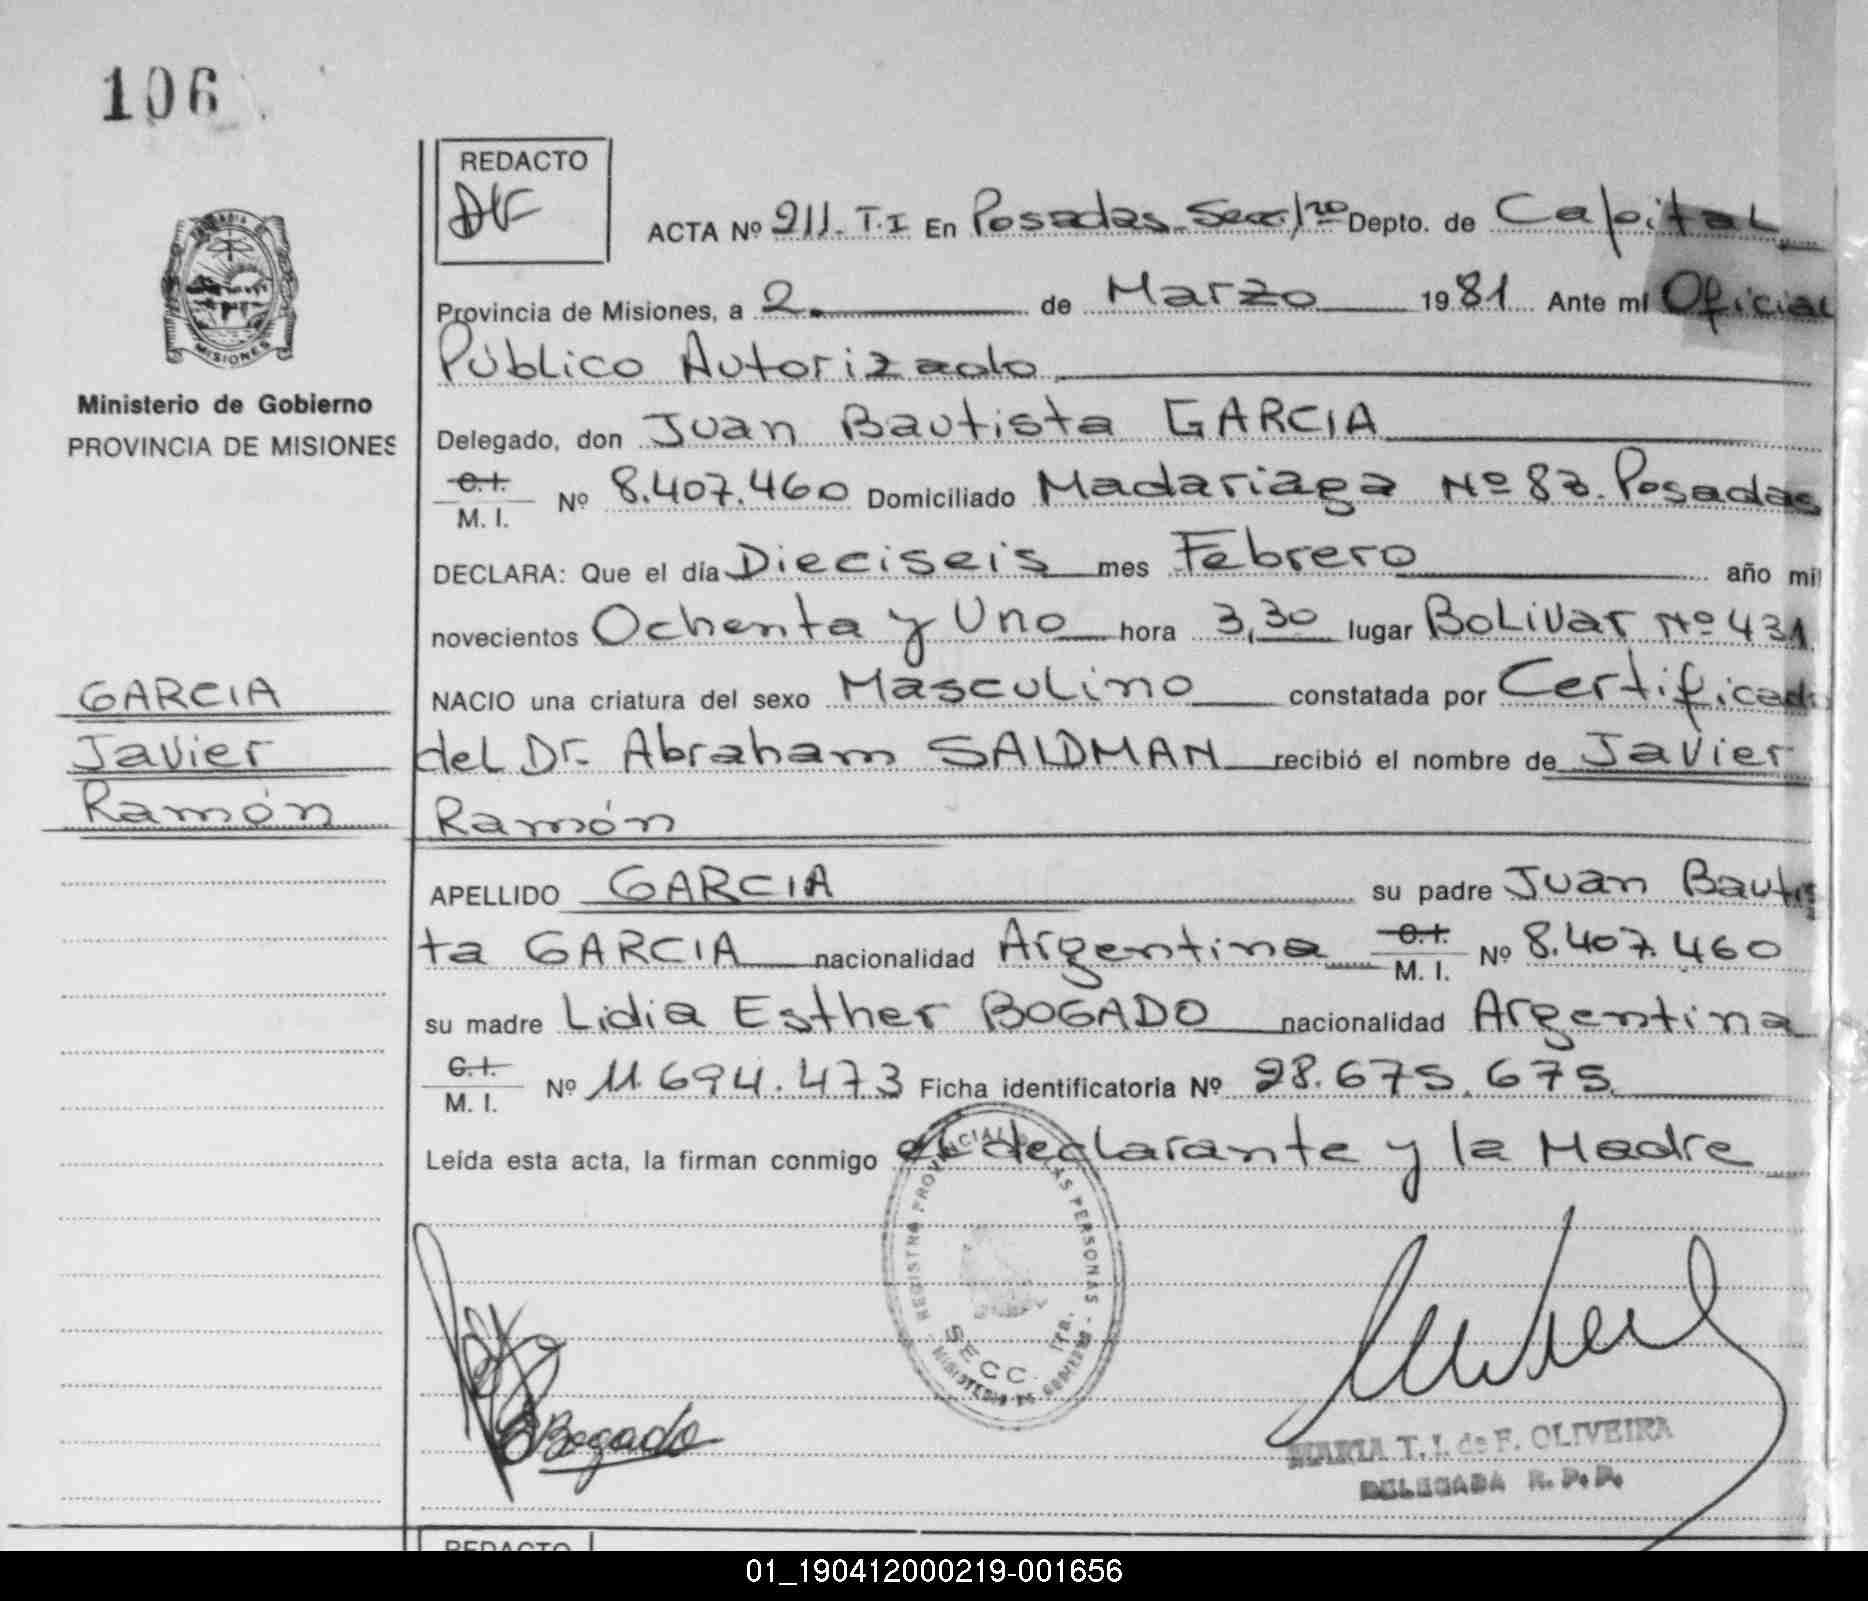 106
REDACTO
ACTA Nº 211. T. I En Posadas Secc. 1ra Depto. de Capital
Provincia de Misiones, a 2 de Marzo 1981 Ante mi Oficial
Público Autorizado
Ministerio de Gobierno
PROVINCIA DE MISIONES
MISIONES
Delegado, don Juan Bautista GARCIA
C.I.
M. I. Nº 8.407.460 Domiciliado Madariaga Nº 83. Posadas
DECLARA: Que el día Dieciseis mes Febrero año mil
novecientos Ochenta y Uno hora 3,30 lugar BoLiVar Nº 431
GARCIA
Javier
Ramón
NACIO una criatura del sexo Masculino constatada por Certificado
del Dr. Abraham SALDMAN recibió el nombre de Javier
Ramón
APELLIDO GARCIA su padre Juan Bautis
ta GARCIA nacionalidad Argentina C.I. M. I. Nº 8.407.460
su madre Lidia Esther BOGADO nacionalidad Argentina
C.I.
M. I. Nº 11.694.473 Ficha identificatoria Nº 28.675.675
Leída esta acta, la firman conmigo el declarante y la Madre
REGISTRO PROVINCIAL DE LAS PERSONAS
SECC. 1ra.
MINISTERIO DE GOBIERNO
Bogado
MARIA T. I. de F. OLIVEIRA
DELEGADA R. P. P.
REDACTO
01_190412000219-001656